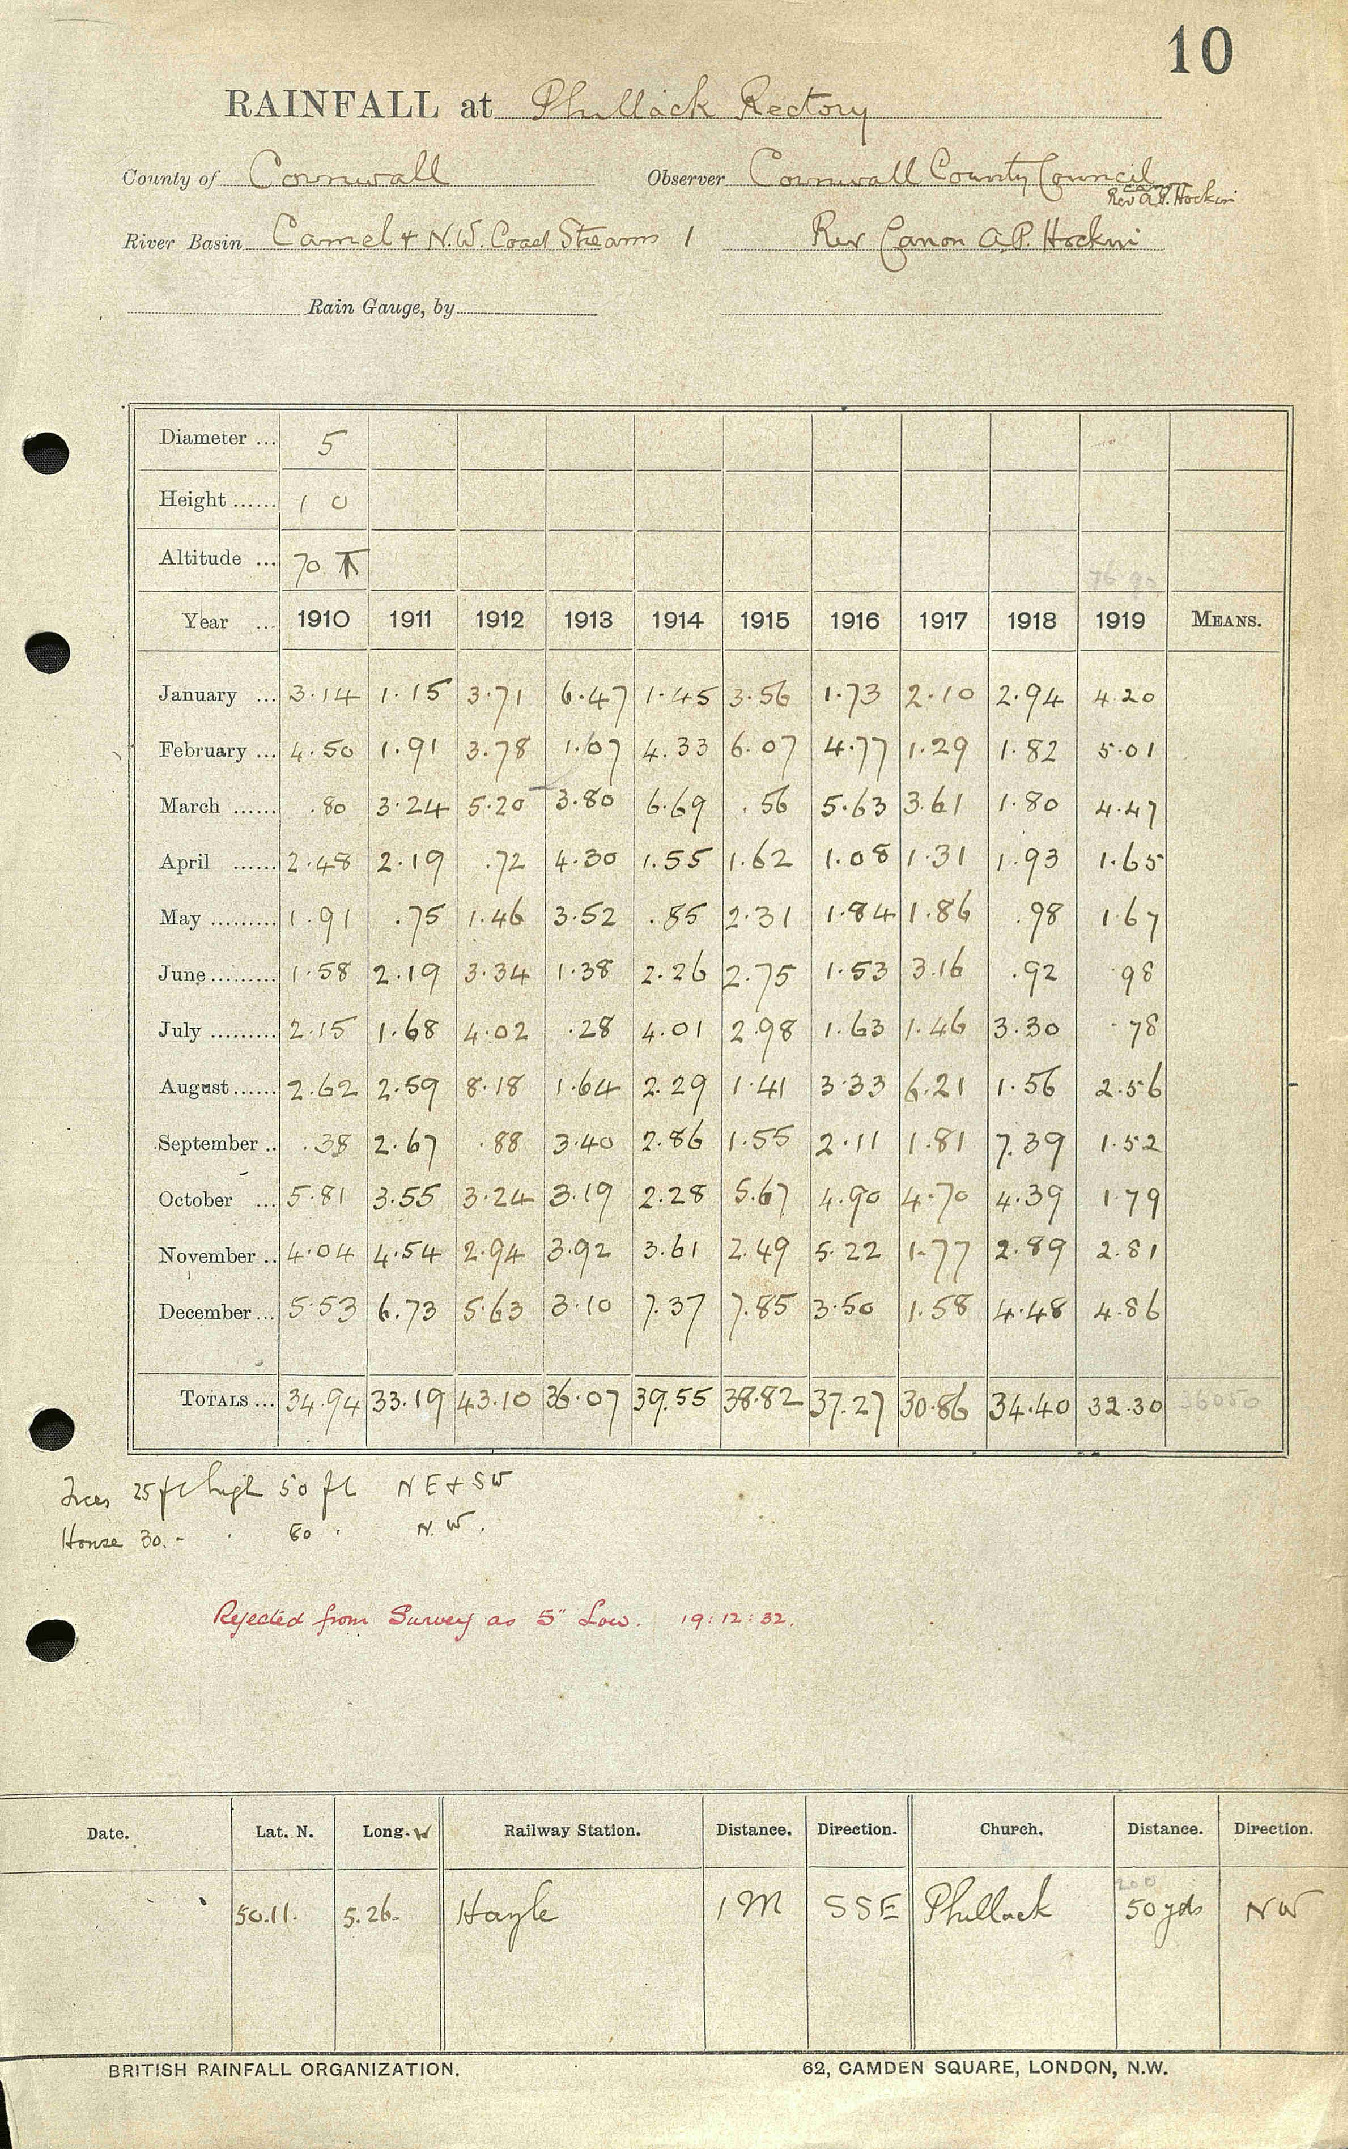 10
RAINFALL at Phillack Rectory
County of Cornwall Observer Cornwall County Council
Rev Can A.P. Hockin
River Basin Camel & N.W. Coast Streams 1 Rev Canon A.P. Hockin
Rain Gauge, by
Diameter ... 5
Height ...... 1 0
Altitude ... 70
Year ... 1910 1911 1912 1913 1914 1915 1916 1917 1918 1919 MEANS.
January ... 3.14 1.15 3.71 6.47 1.45 3.56 1.73 2.10 2.94 4.20
February ... 4.50 1.91 3.78 1.67 4.33 6.07 4.77 1.29 1.82 5.01
March ...... .80 3.24 5.20 3.80 6.69 .56 5.63 3.61 1.80 4.47
April ...... 2.48 2.19 .72 4.30 1.55 1.62 1.08 1.31 1.93 1.65
May ......... 1.91 .75 1.46 3.52 .85 2.31 1.84 1.86 .98 1.67
June ......... 1.58 2.19 3.34 1.38 2.26 2.75 1.53 3.16 .92 .98
July ......... 2.15 1.68 4.02 .28 4.01 2.98 1.63 1.46 3.30 .78
August ...... 2.62 2.59 8.18 1.64 2.29 1.41 3.33 6.21 1.56 2.56
September .. .38 2.67 .88 3.40 2.86 1.55 2.11 1.81 7.39 1.52
October ... 5.81 3.55 3.24 3.19 2.28 5.67 4.90 4.70 4.39 1.79
November .. 4.04 4.54 2.94 3.92 3.61 2.49 5.22 1.77 2.89 2.81
December ... 5.53 6.73 5.63 3.10 7.37 7.85 3.50 1.58 4.48 4.86
TOTALS ... 34.94 33.19 43.10 36.07 39.55 38.82 37.27 30.86 34.40 32.30
Trees 25 ft high 50 ft N E & SW
House 30 . . 60 . N. W.
Rejected from Survey as 5" Low. 19:12:32.
Date. Lat. N. Long. W Railway Station. Distance. Direction. Church. Distance. Direction.
200
50.11. 5.26. Hayle 1 M S S E Phillack 50 yds N W
BRITISH RAINFALL ORGANIZATION. 62, CAMDEN SQUARE, LONDON, N.W.